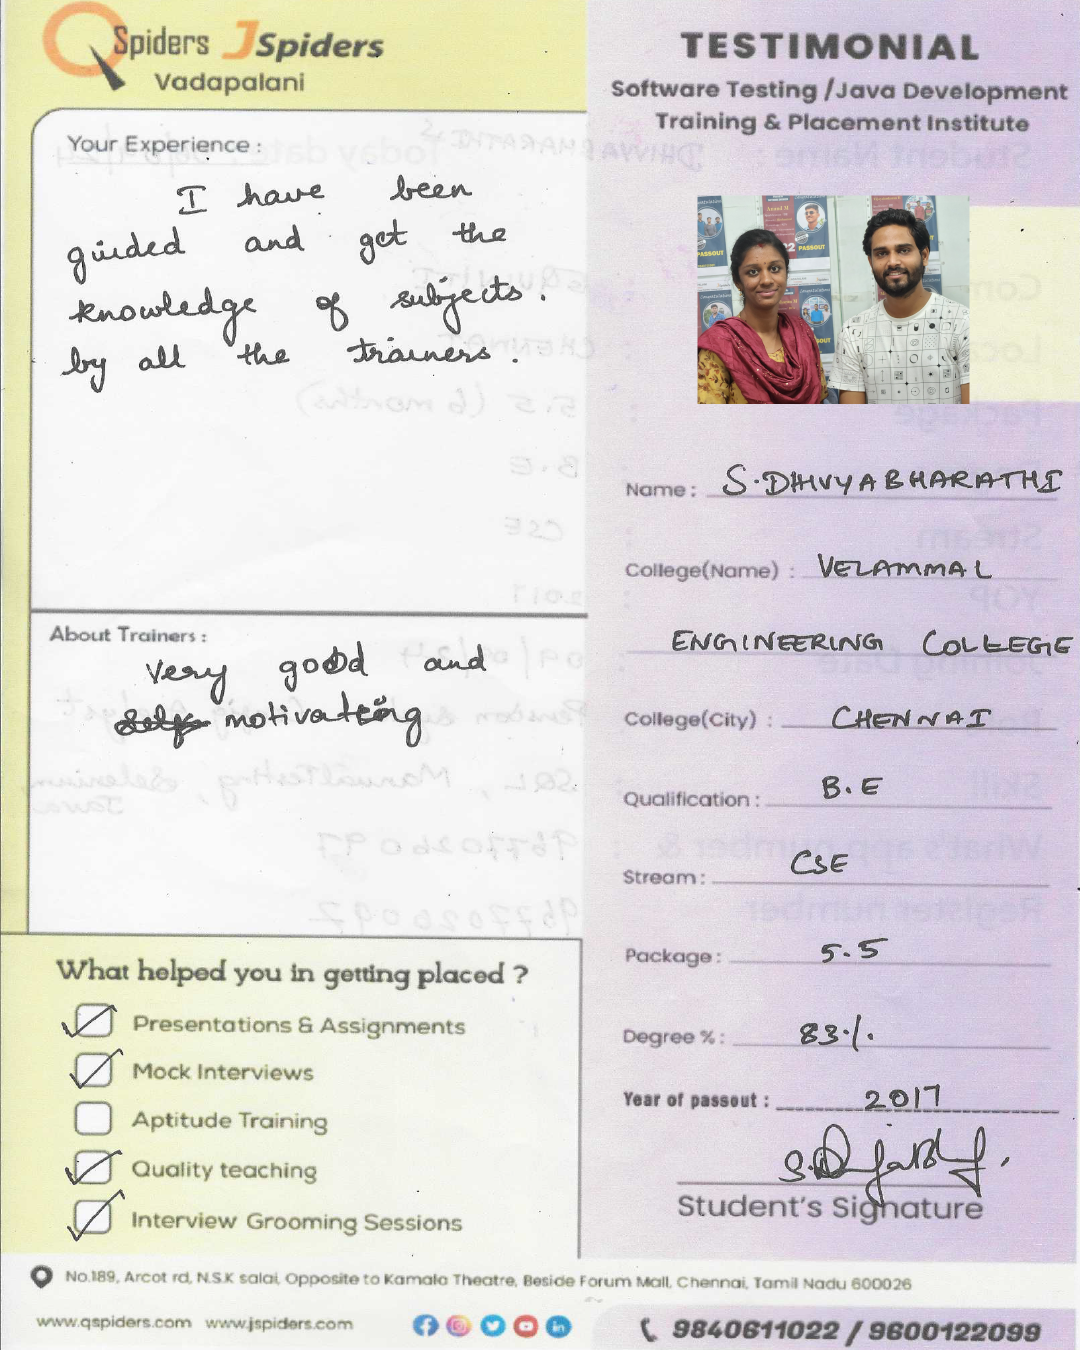 QSpiders JSpiders
Vadapalani
TESTIMONIAL
Software Testing /Java Development
Training & Placement Institute
Your Experience :
I have been
guided and got the
knowledge of subjects.
by all the trainers.
PASSOUT
PASSOUT
Name : S.DHIVYABHARATHI
College(Name) : VELAMMAL
ENGINEERING COLLEGE
College(City) : CHENNAI
Qualification : B.E
Stream : CSE
Package : 5.5
Degree % : 83%.
Year of passout : 2017
Student's Signature
About Trainers :
Very good and
motivating
What helped you in getting placed ?
Presentations & Assignments
Mock Interviews
Aptitude Training
Quality teaching
Interview Grooming Sessions
No.189, Arcot rd, N.S.K salai, Opposite to Kamala Theatre, Beside Forum Mall, Chennai, Tamil Nadu 600026
www.qspiders.com www.jspiders.com
9840611022 / 9600122099